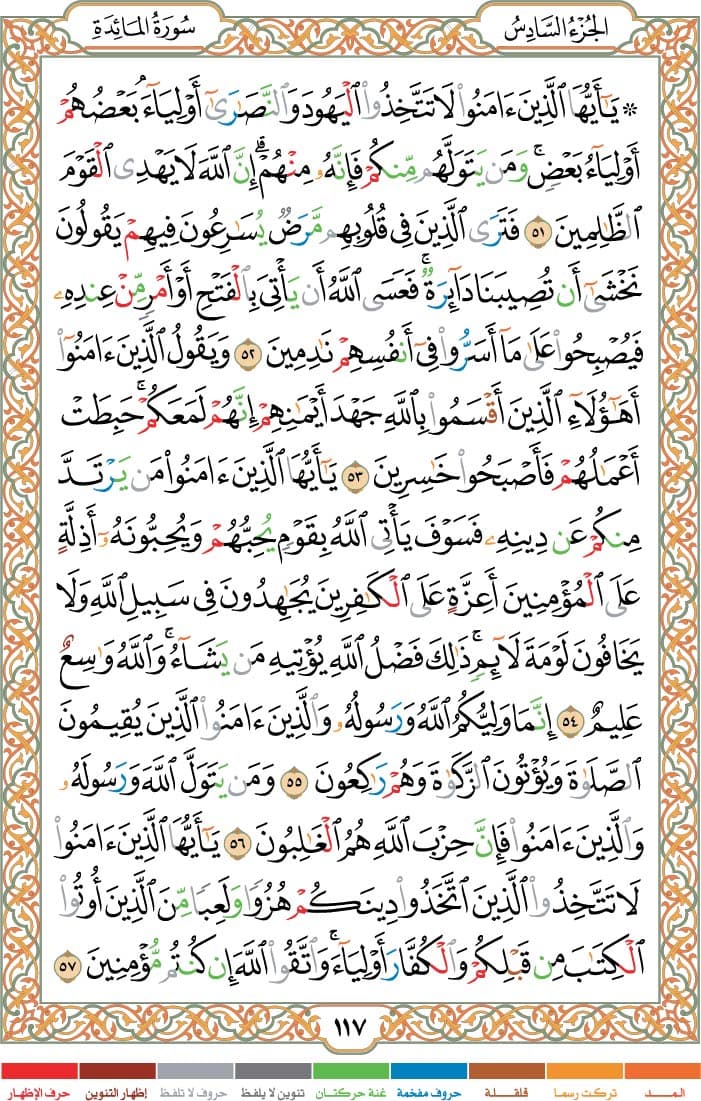 الجُزْءُ السَّادِسُ
سُورَةُ المَائِدَةِ
* يَٰٓأَيُّهَا ٱلَّذِينَ ءَامَنُوا۟ لَا تَتَّخِذُوا۟ ٱلْيَهُودَ وَٱلنَّصَٰرَىٰٓ أَوْلِيَآءَ ۘ بَعْضُهُمْ
أَوْلِيَآءُ بَعْضٍ ۚ وَمَن يَتَوَلَّهُم مِّنكُمْ فَإِنَّهُۥ مِنْهُمْ ۗ إِنَّ ٱللَّهَ لَا يَهْدِى ٱلْقَوْمَ
ٱلظَّٰلِمِينَ ٥١ فَتَرَى ٱلَّذِينَ فِى قُلُوبِهِم مَّرَضٌ يُسَٰرِعُونَ فِيهِمْ يَقُولُونَ
نَخْشَىٰٓ أَن تُصِيبَنَا دَآئِرَةٌ ۚ فَعَسَى ٱللَّهُ أَن يَأْتِىَ بِٱلْفَتْحِ أَوْ أَمْرٍ مِّنْ عِندِهِۦ
فَيُصْبِحُوا۟ عَلَىٰ مَآ أَسَرُّوا۟ فِىٓ أَنفُسِهِمْ نَٰدِمِينَ ٥٢ وَيَقُولُ ٱلَّذِينَ ءَامَنُوٓا۟
أَهَٰٓؤُلَآءِ ٱلَّذِينَ أَقْسَمُوا۟ بِٱللَّهِ جَهْدَ أَيْمَٰنِهِمْ إِنَّهُمْ لَمَعَكُمْ ۚ حَبِطَتْ
أَعْمَٰلُهُمْ فَأَصْبَحُوا۟ خَٰسِرِينَ ٥٣ يَٰٓأَيُّهَا ٱلَّذِينَ ءَامَنُوا۟ مَن يَرْتَدَّ
مِنكُمْ عَن دِينِهِۦ فَسَوْفَ يَأْتِى ٱللَّهُ بِقَوْمٍ يُحِبُّهُمْ وَيُحِبُّونَهُۥٓ أَذِلَّةٍ
عَلَى ٱلْمُؤْمِنِينَ أَعِزَّةٍ عَلَى ٱلْكَٰفِرِينَ يُجَٰهِدُونَ فِى سَبِيلِ ٱللَّهِ وَلَا
يَخَافُونَ لَوْمَةَ لَآئِمٍ ۚ ذَٰلِكَ فَضْلُ ٱللَّهِ يُؤْتِيهِ مَن يَشَآءُ ۚ وَٱللَّهُ وَٰسِعٌ
عَلِيمٌ ٥٤ إِنَّمَا وَلِيُّكُمُ ٱللَّهُ وَرَسُولُهُۥ وَٱلَّذِينَ ءَامَنُوا۟ ٱلَّذِينَ يُقِيمُونَ
ٱلصَّلَوٰةَ وَيُؤْتُونَ ٱلزَّكَوٰةَ وَهُمْ رَٰكِعُونَ ٥٥ وَمَن يَتَوَلَّ ٱللَّهَ وَرَسُولَهُۥ
وَٱلَّذِينَ ءَامَنُوا۟ فَإِنَّ حِزْبَ ٱللَّهِ هُمُ ٱلْغَٰلِبُونَ ٥٦ يَٰٓأَيُّهَا ٱلَّذِينَ ءَامَنُوا۟
لَا تَتَّخِذُوا۟ ٱلَّذِينَ ٱتَّخَذُوا۟ دِينَكُمْ هُزُوًا وَلَعِبًا مِّنَ ٱلَّذِينَ أُوتُوا۟
ٱلْكِتَٰبَ مِن قَبْلِكُمْ وَٱلْكُفَّارَ أَوْلِيَآءَ ۚ وَٱتَّقُوا۟ ٱللَّهَ إِن كُنتُم مُّؤْمِنِينَ ٥٧
١١٧
المــد تركت رسما قلقلة حروف مفخمة غنة حركتان تنوين لا يلفظ حروف لا تلفظ إظهار التنوين حرف الإظهار